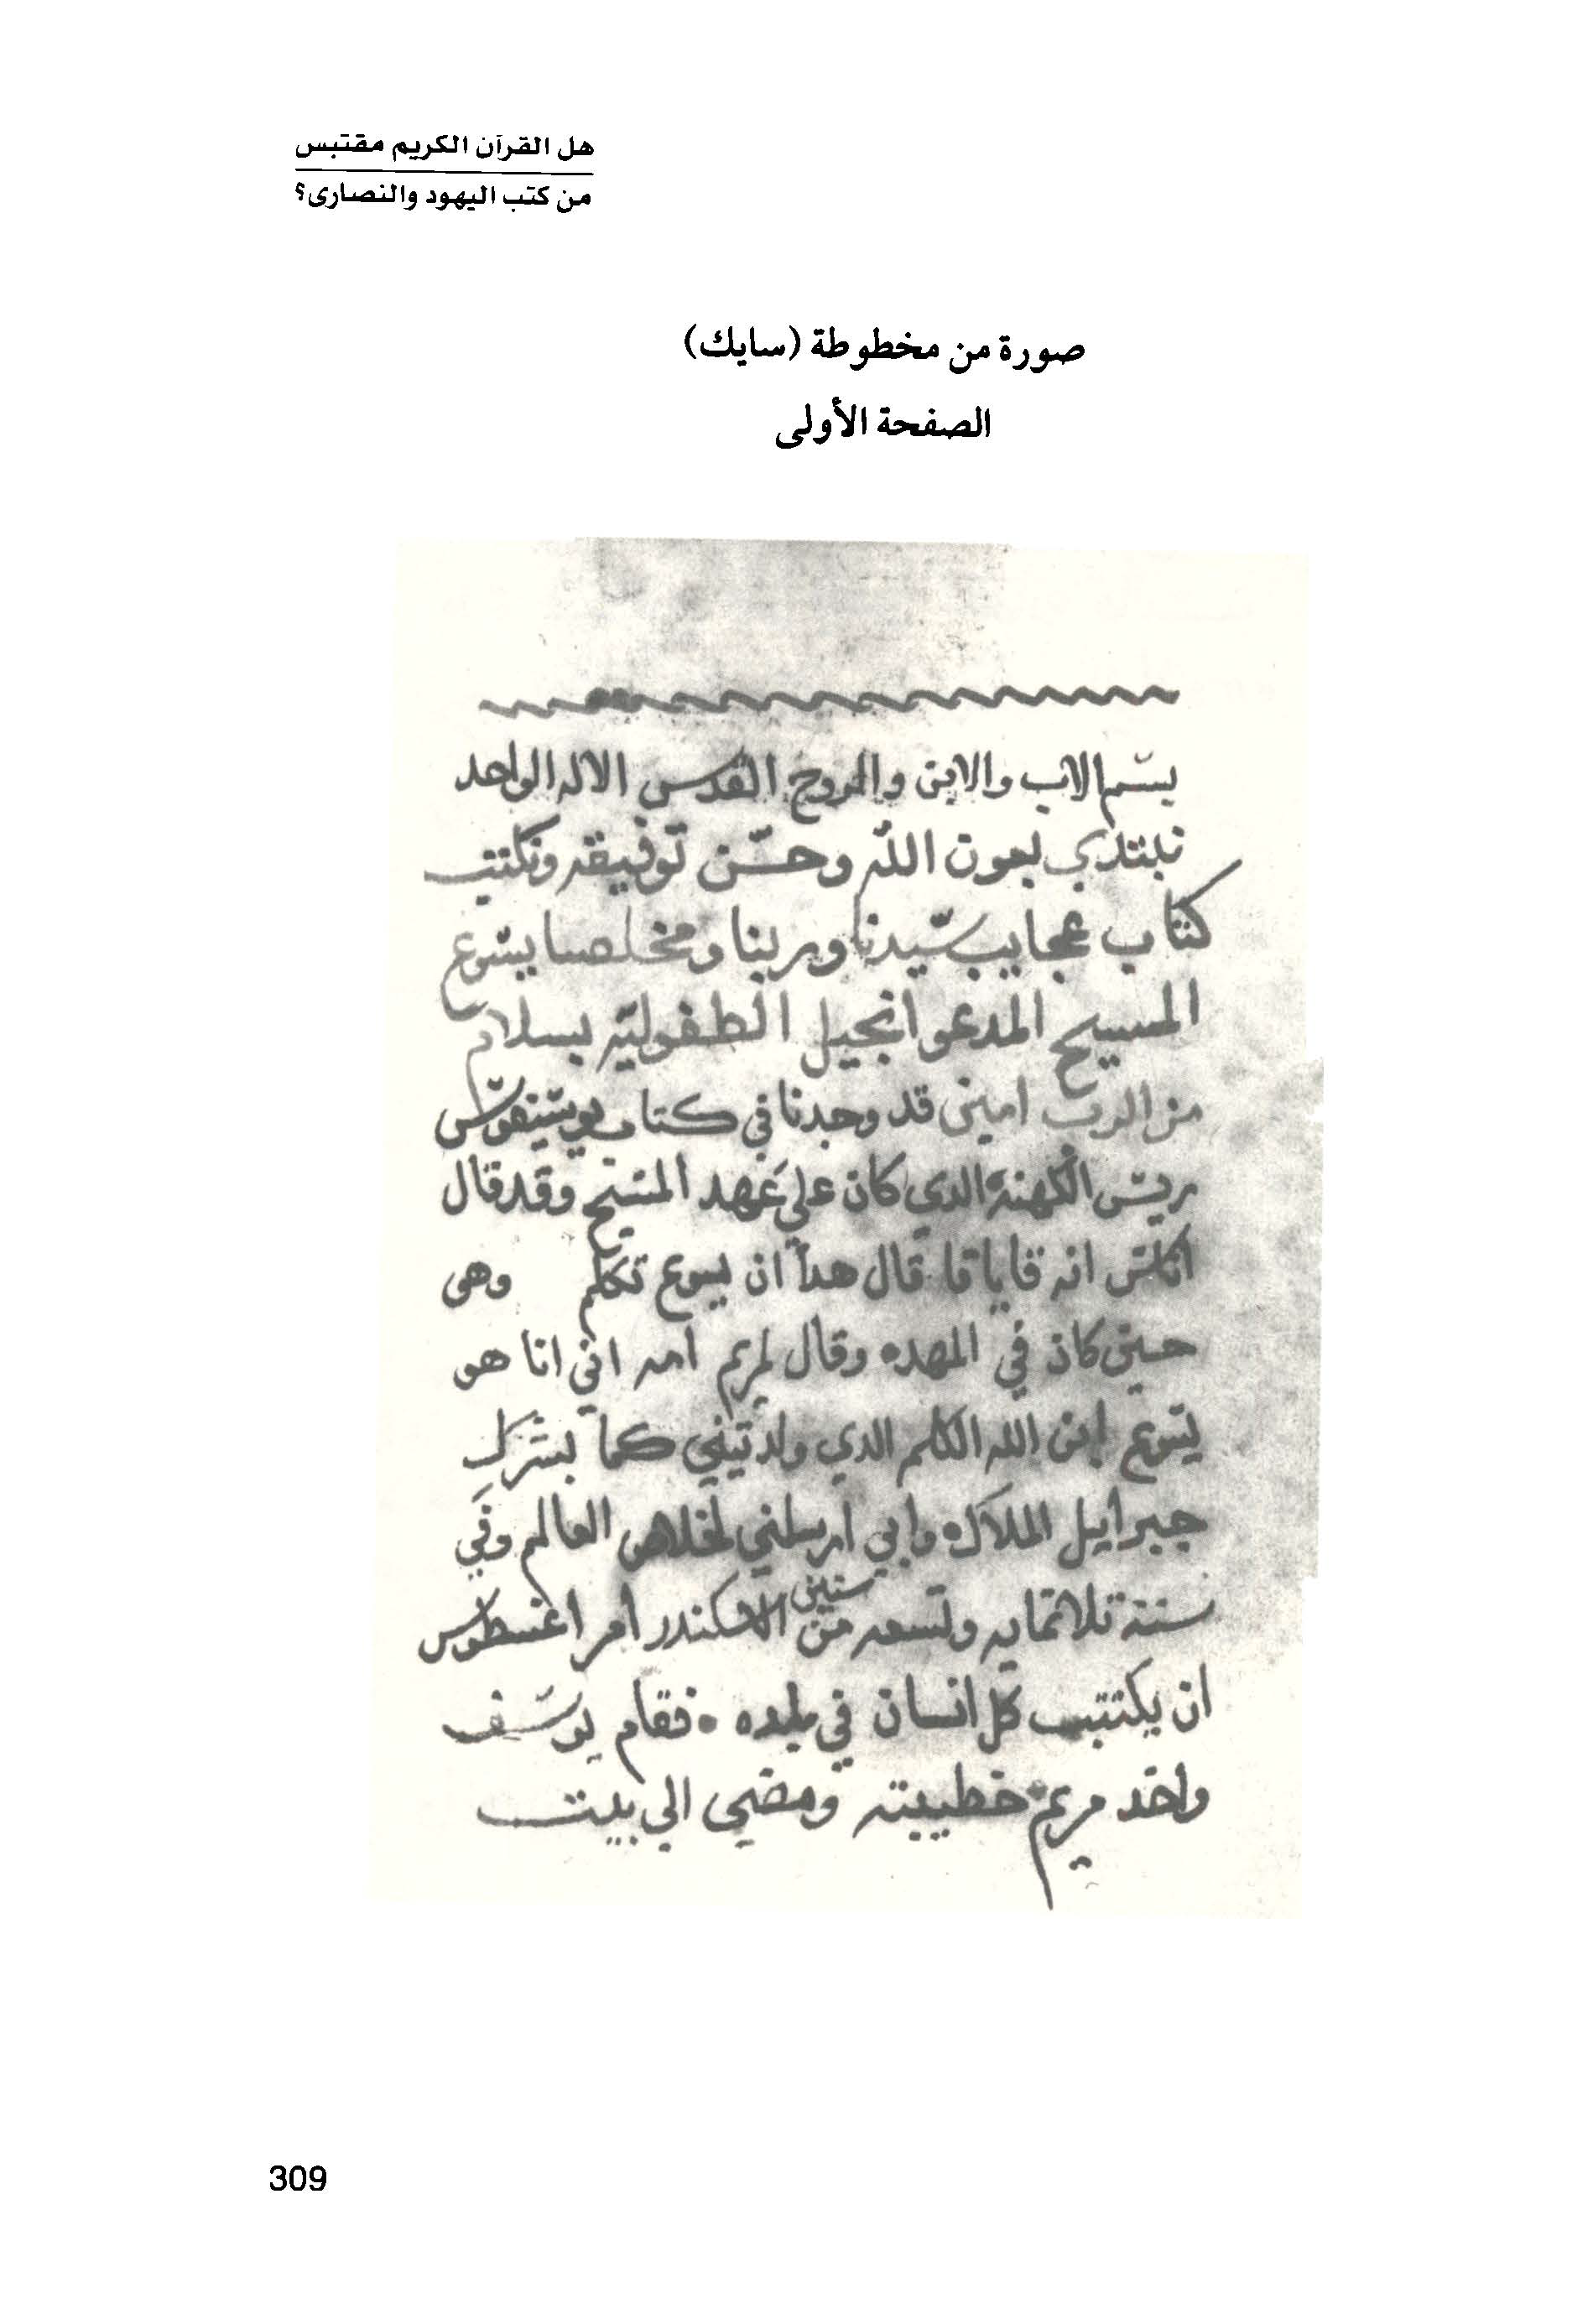 هل القرآن الكريم مقتبس
من كتب اليهود والنصارى؟
صورة من مخطوطة (سايك)
الصفحة الأولى
بسم الاب والابن والروح القدس الاله الواحد
نبتدي بعون الله وحسن توفيقه ونكتب
كتاب عجايب سيدنا وربنا ومخلصنا يسوع
المسيح المدعو انجيل الطفوليه بسلام
من الرب امين قد وجدنا في كتاب يوسيفوس
ريس الكهنة الدي كان علي عهد المسيح وقد قال
اناس انه قايافا قال هدا ان يسوع تكلم وهى
حين كان في المهده وقال لمريم امه اني انا هو
يسوع ابن الله الكلمه الدي ولدتيني كما بشرك
جبرايل الملاك وابي ارسلني لخلاص العالم وفي
سنة تلاتمايه وتسعه من سنين الاسكندر امر اغسطوس
ان يكتتب كل انسان في بلده فقام يوسف
واخد مريم خطيبته ومضي الي بيت
309